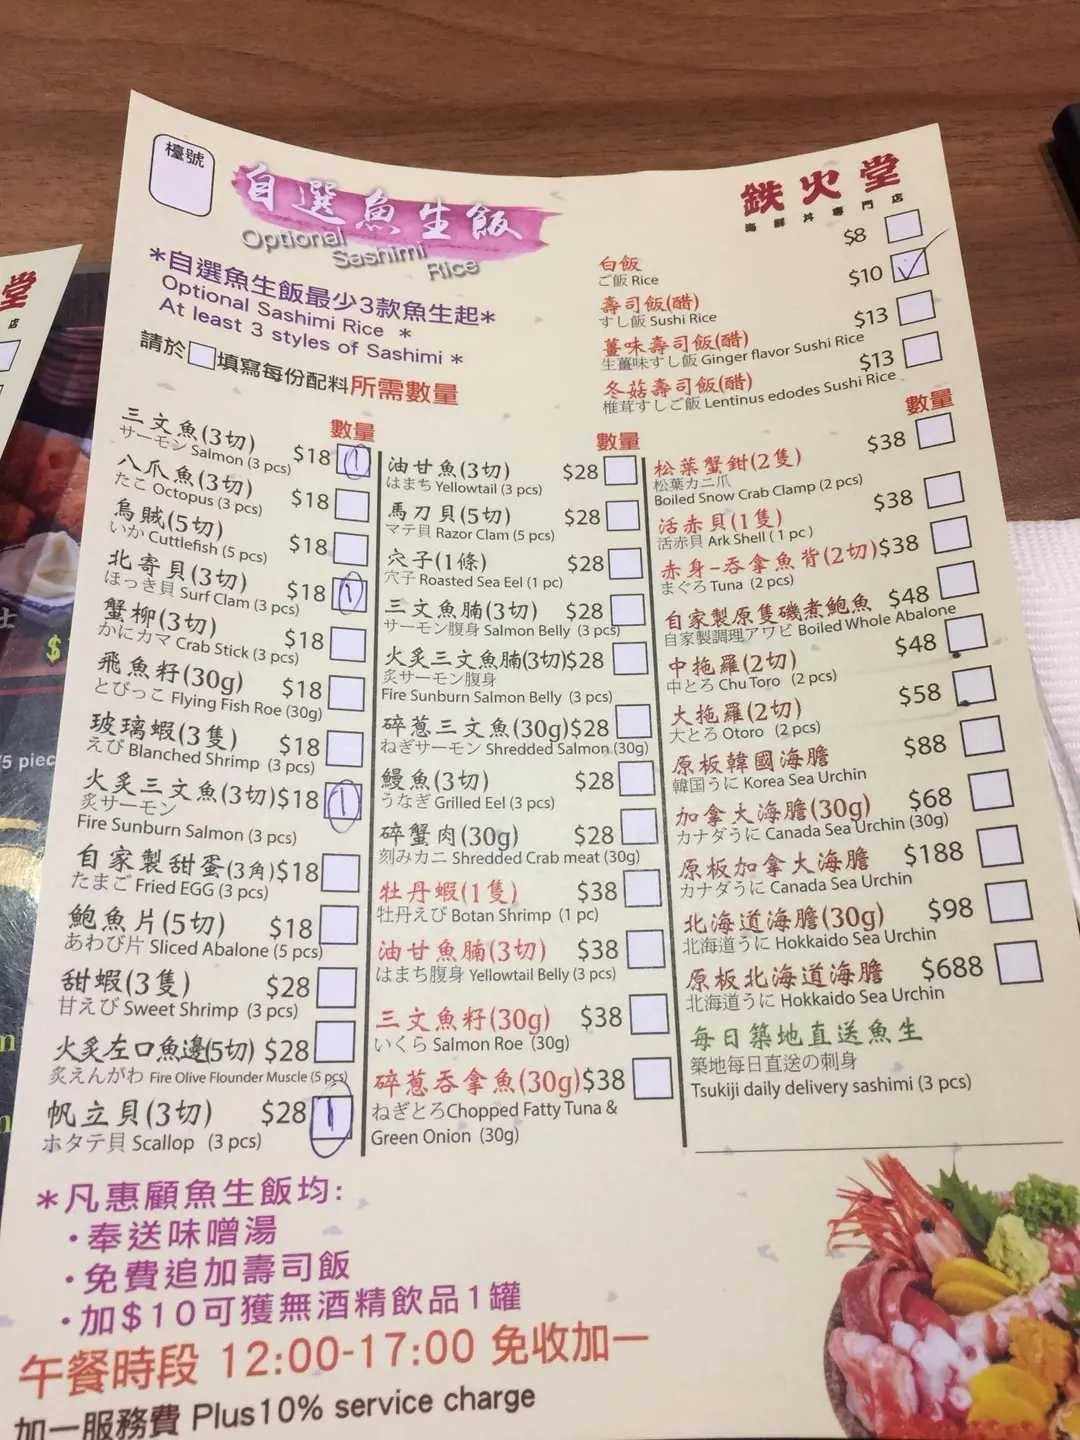 檯號
自選魚生飯
Optional Sashimi Rice
*自選魚生飯最少3款魚生起*
Optional Sashimi Rice *
At least 3 styles of Sashimi *
請於 填寫每份配料所需數量
鉄火堂
海鮮丼專門店
白飯 $8
ご飯 Rice
壽司飯(醋) $10 ✓
すし飯 Sushi Rice
薑味壽司飯(醋) $13
生薑味すし飯 Ginger flavor Sushi Rice
冬菇壽司飯(醋) $13
椎茸すしご飯 Lentinus edodes Sushi Rice
數量
三文魚(3切) $18 1
サーモン Salmon (3 pcs)
八爪魚(3切) $18
たこ Octopus (3 pcs)
烏賊(5切) $18
いか Cuttlefish (5 pcs)
北寄貝(3切) $18 1
ほっき貝 Surf Clam (3 pcs)
蟹柳(3切) $18
かにカマ Crab Stick (3 pcs)
飛魚籽(30g) $18
とびっこ Flying Fish Roe (30g)
玻璃蝦(3隻) $18
えび Blanched Shrimp (3 pcs)
火炙三文魚(3切) $18 1
炙サーモン
Fire Sunburn Salmon (3 pcs)
自家製甜蛋(3角) $18
たまご Fried EGG (3 pcs)
鮑魚片(5切) $18
あわび片 Sliced Abalone (5 pcs)
甜蝦(3隻) $28
甘えび Sweet Shrimp (3 pcs)
火炙左口魚邊(5切) $28
炙えんがわ Fire Olive Flounder Muscle (5 pcs)
帆立貝(3切) $28 1
ホタテ貝 Scallop (3 pcs)
數量
油甘魚(3切) $28
はまち Yellowtail (3 pcs)
馬刀貝(5切) $28
マテ貝 Razor Clam (5 pcs)
穴子(1條) $28
穴子 Roasted Sea Eel (1 pc)
三文魚腩(3切) $28
サーモン腹身 Salmon Belly (3 pcs)
火炙三文魚腩(3切) $28
炙サーモン腹身
Fire Sunburn Salmon Belly (3 pcs)
碎蔥三文魚(30g) $28
ねぎサーモン Shredded Salmon (30g)
鰻魚(3切) $28
うなぎ Grilled Eel (3 pcs)
碎蟹肉(30g) $28
刻みカニ Shredded Crab meat (30g)
牡丹蝦(1隻) $38
牡丹えび Botan Shrimp (1 pc)
油甘魚腩(3切) $38
はまち腹身 Yellowtail Belly (3 pcs)
三文魚籽(30g) $38
いくら Salmon Roe (30g)
碎蔥吞拿魚(30g) $38
ねぎとろ Chopped Fatty Tuna &
Green Onion (30g)
數量
松葉蟹鉗(2隻) $38
松葉カニ爪
Boiled Snow Crab Clamp (2 pcs)
活赤貝(1隻) $38
活赤貝 Ark Shell ( 1 pc )
赤身-吞拿魚背(2切) $38
まぐろ Tuna (2 pcs)
自家製原隻磯煮鮑魚 $48
自家製調理アワビ Boiled Whole Abalone
中拖羅(2切) $48
中とろ Chu Toro (2 pcs)
大拖羅(2切) $58
大とろ Otoro (2 pcs)
原板韓國海膽 $88
韓国うに Korea Sea Urchin
加拿大海膽(30g) $68
カナダうに Canada Sea Urchin (30g)
原板加拿大海膽 $188
カナダうに Canada Sea Urchin
北海道海膽(30g) $98
北海道うに Hokkaido Sea Urchin
原板北海道海膽 $688
北海道うに Hokkaido Sea Urchin
每日築地直送魚生
築地每日直送の刺身
Tsukiji daily delivery sashimi (3 pcs)
*凡惠顧魚生飯均:
・奉送味噌湯
・免費追加壽司飯
・加$10可獲無酒精飲品1罐
午餐時段 12:00-17:00 免收加一
加一服務費 Plus10% service charge
堂
店
$
/5 piec